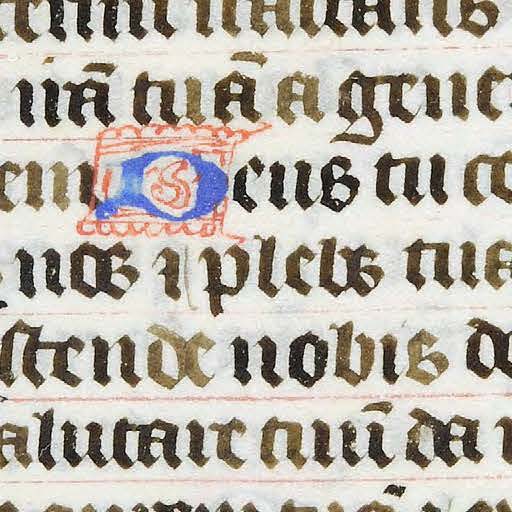 uiã tuã a gene
em Deus tu co
nos ⁊ plebs tua
stende nobis do
alutare tuũ da n